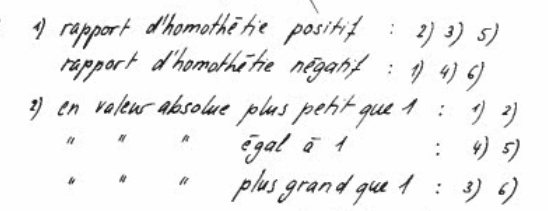 1) rapport d'homothétie positif : 2) 3) 5)
rapport d'homothétie négatif : 1) 4) 6)
2) en valeur absolue plus petit que 1 : 1) 2)
" " " égal à 1 : 4) 5)
" " " plus grand que 1 : 3) 6)